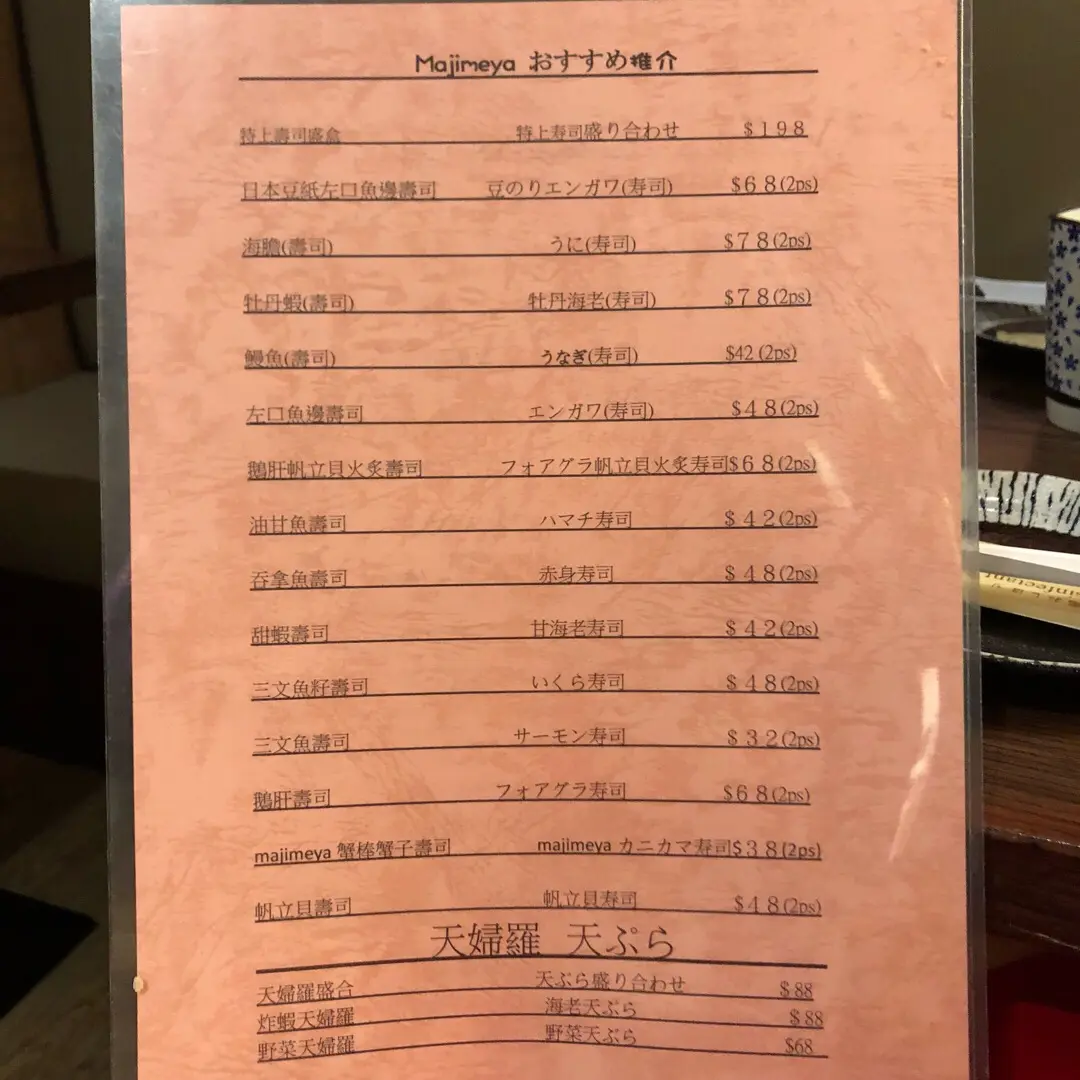 Majimeya おすすめ推介
特上壽司盛盒 特上寿司盛り合わせ $198
日本豆紙左口魚邊壽司 豆のりエンガワ(寿司) $68(2ps)
海膽(壽司) うに(寿司) $78(2ps)
牡丹蝦(壽司) 牡丹海老(寿司) $78(2ps)
鰻魚(壽司) うなぎ(寿司) $42(2ps)
左口魚邊壽司 エンガワ(寿司) $48(2ps)
鵝肝帆立貝火炙壽司 フォアグラ帆立貝火炙寿司$68(2ps)
油甘魚壽司 ハマチ寿司 $42(2ps)
吞拿魚壽司 赤身寿司 $48(2ps)
甜蝦壽司 甘海老寿司 $42(2ps)
三文魚籽壽司 いくら寿司 $48(2ps)
三文魚壽司 サーモン寿司 $32(2ps)
鵝肝壽司 フォアグラ寿司 $68(2ps)
majimeya 蟹棒蟹子壽司 majimeya カニカマ寿司$38(2ps)
帆立貝壽司 帆立貝寿司 $48(2ps)
天婦羅 天ぷら
天婦羅盛合 天ぷら盛り合わせ $88
炸蝦天婦羅 海老天ぷら $88
野菜天婦羅 野菜天ぷら $68